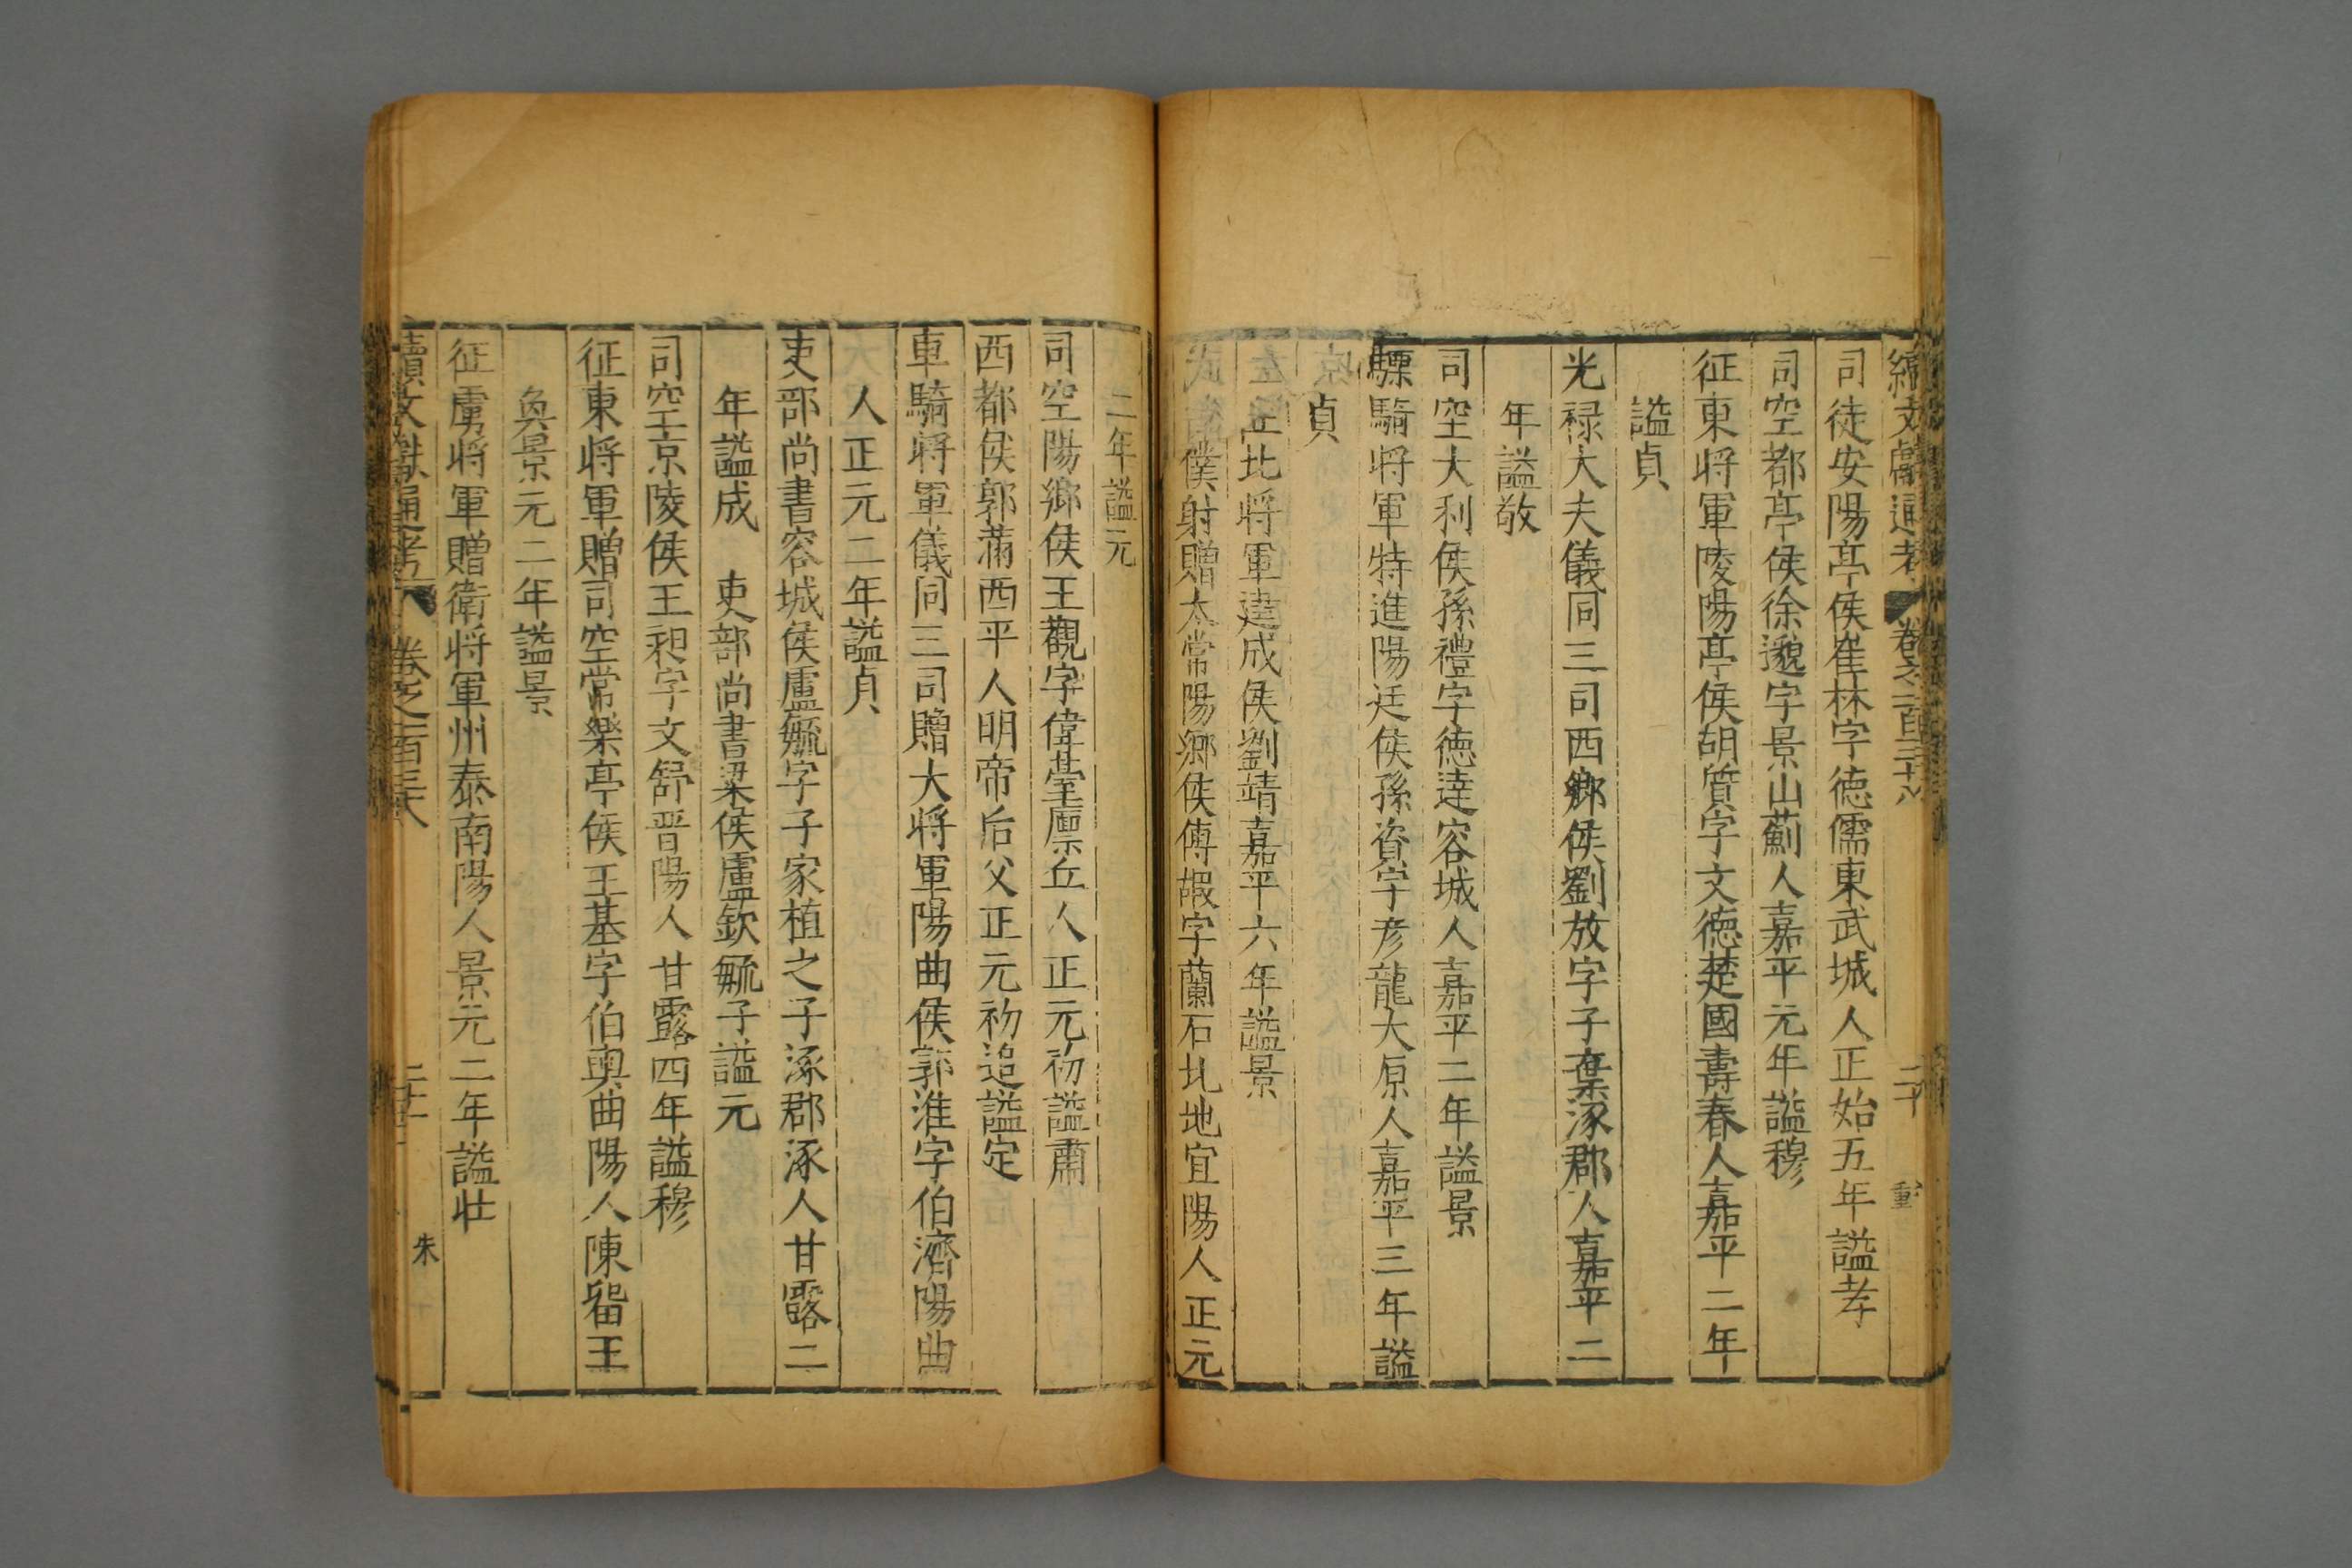 續文獻通考 卷之一百三十六 二十
司徒安陽亭侯崔林字德儒東武城人正始五年謚孝
司空都亭侯徐邈字景山薊人嘉平元年謚穆
征東將軍陵陽亭侯胡質字文德楚國壽春人嘉平二年
謚貞
光祿大夫儀同三司西鄉侯劉放字子棄涿郡人嘉平二
年謚敬
司空大利侯孫禮字德達容城人嘉平二年謚景
驃騎將軍特進陽廷侯孫資字彥龍大原人嘉平三年謚
貞
北將軍建成侯劉靖嘉平六年謚景
僕射贈太常陽鄉侯傅嘏字蘭石北地宜陽人正元
二年謚元
司空陽鄉侯王觀字偉臺廩丘人正元初謚肅
西都侯郭滿西平人明帝后父正元初追謚定
車騎將軍儀同三司贈大將軍陽曲侯郭淮字伯濟陽曲
人正元二年謚貞
吏部尚書容城侯盧毓字子家植之子涿郡涿人甘露二
年謚成 吏部尚書梁侯盧欽毓子謚元
司空京陵侯王昶字文舒晋陽人甘露四年謚穆
征東將軍贈司空常樂亭侯王基字伯輿曲陽人陳留王
奐景元二年謚景
征虜將軍贈衛將軍州泰南陽人景元二年謚壯
續文獻通考 卷之一百三十六 二十一 朱